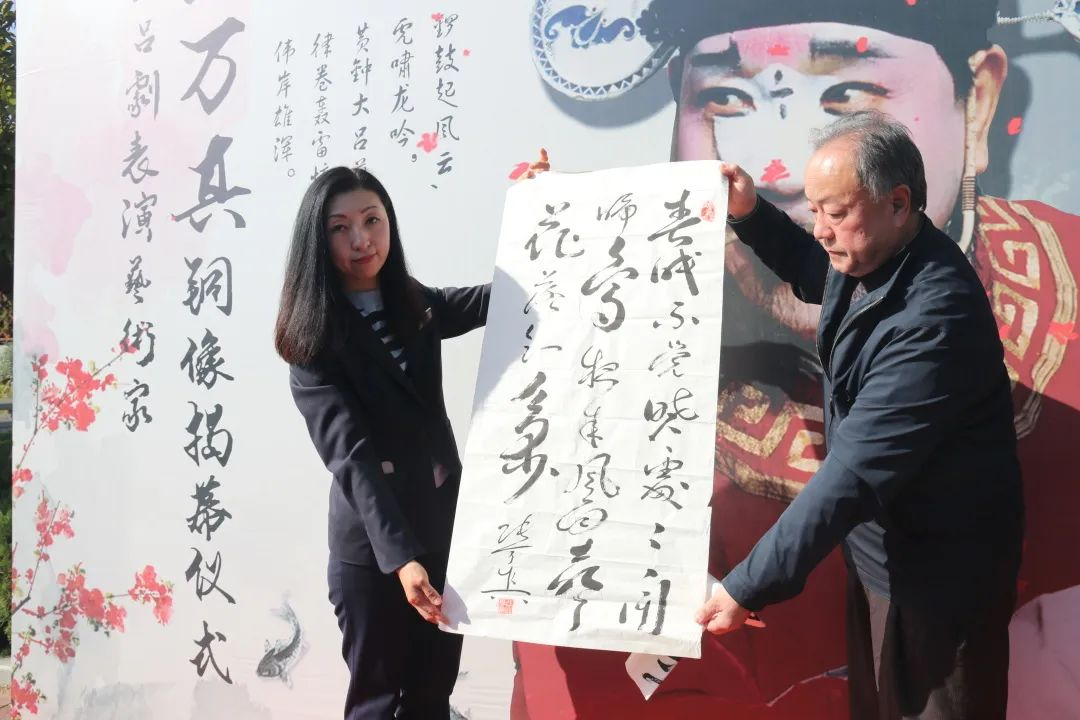 锣鼓起风云、
虎啸龙吟，
黄钟大吕
律卷轰雷
伟岸雄浑。
万真铜像揭幕仪式
吕劇表演藝術家
春眠不觉晓處々闻
啼鸟夜来风雨声
花落知多少